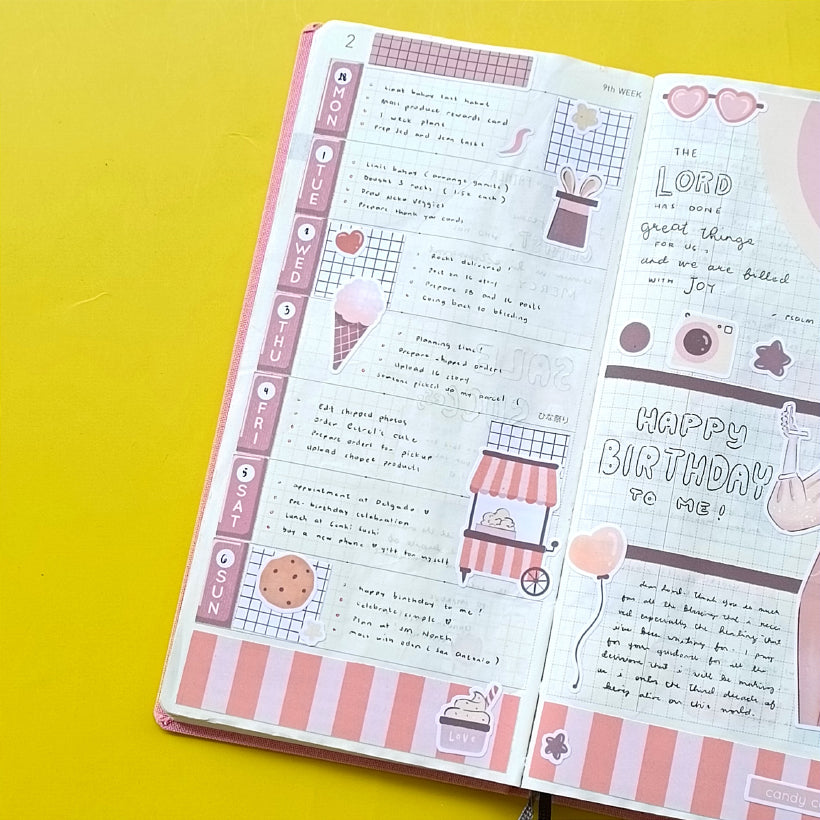 2
9th WEEK
MON
Most product rewards card
1 week plant
prep Jed and Jean tasks
1
TUE
Prepare thank you cards
WED
Rocks delivered!
Prepare IB and IG posts
Going back to bleeding
3
THU
Planning time!
Prepare shipped orders
Upload IG story
Someone picked up my parcel :(
4
FRI
Edit shipped photos
Order Estrel's cake
Prepare orders for pickup
Upload shopee products
ひな祭り
5
SAT
Appointment at Delgado
Pre-birthday celebration
Lunch at Genki Sushi
Buy a new phone gift for myself
6
SUN
Happy birthday to me!
Celebrate simple
Plan at SM North
Mass with (San Antonio)
Love
THE
LORD
HAS DONE
great things
FOR US,
and we are filled
WITH JOY
- PSALM
HAPPY
BIRTHDAY
TO ME!
Dear Lord, thank you so much
for all the blessing that I rece-
ved especially the healing that
I've been waiting for. I pray
for your guidance for all the
decisions that I will be making
as I enter the third decade of
being alive on this world.
candy c